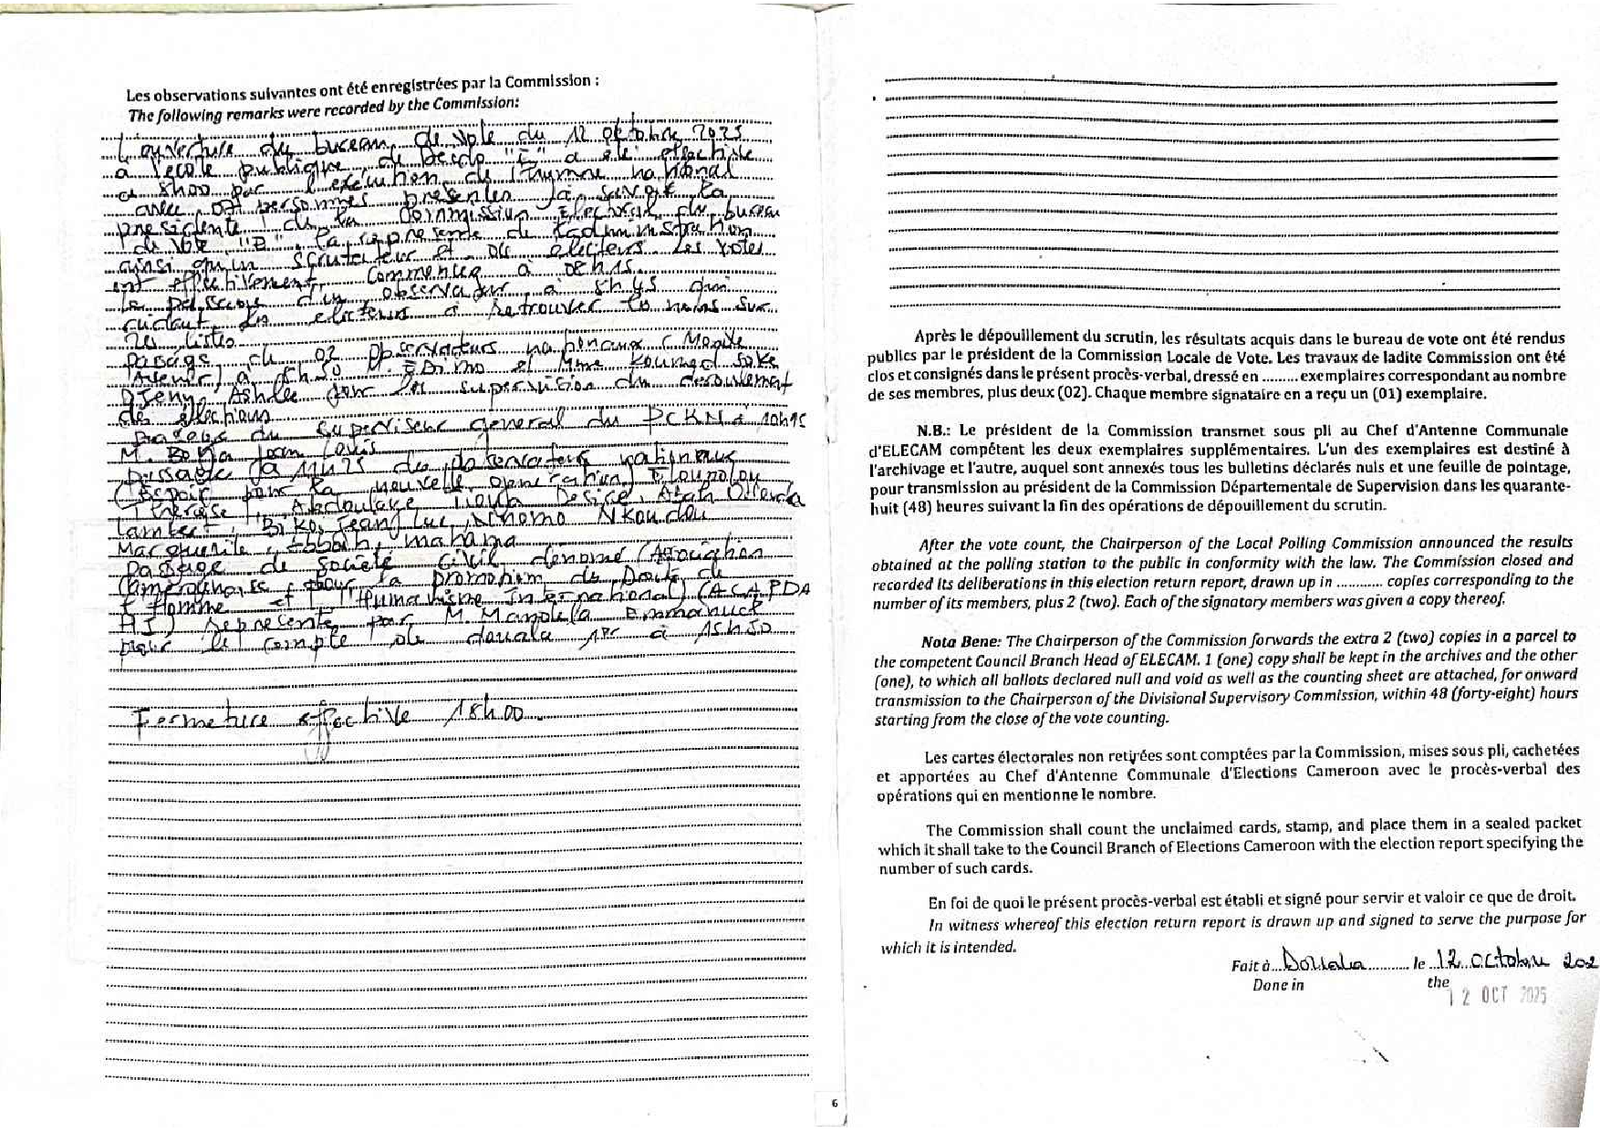 Les observations suivantes ont été enregistrées par la Commission :
The following remarks were recorded by the Commission:
L'ouverture du bureau de vote du 12 octobre 2025
à l'école publique de "E" a été effective
à 8h00 par l'exécution de l'hymne national
avec 07 personnes présentes à savoir la
présidente de la Commission Electoral du bureau
de vote la représente de l'administration
ainsi qu'un scrutateur et électeurs les votes
ont effectivement commencer à 08h15.
Le passage d'un observateur à 8h45 qui
les électeurs à retrouver les noms sur
les listes
Passage de 02 observateurs nationaux
à M. et Mme
Ashlee pour la supervision du déroulement
des élections
Passage du superviseur general du PCRN à 10h15
M. Jean Louis
Passage à 11h25 des observateurs nationaux
(Espoir pour la nouvelle génération)
Thérèse, Abdoulaye Desire,
Lambert, Biko Jean Luc, Nkoudou
Marguerite, mahama
Passage de Société civil dénomé (Association
Camerounaise pour la promotion du Droits de
l'Homme et l'Humanisme International) (ACAPDA
HI) représenté par M. Emmanuel
pour le compte de douala 1er à 15h30
Fermeture effective 18h00
6
Après le dépouillement du scrutin, les résultats acquis dans le bureau de vote ont été rendus
publics par le président de la Commission Locale de Vote. Les travaux de ladite Commission ont été
clos et consignés dans le présent procès-verbal, dressé en .........exemplaires correspondant au nombre
de ses membres, plus deux (02). Chaque membre signataire en a reçu un (01) exemplaire.
N.B.: Le président de la Commission transmet sous pli au Chef d'Antenne Communale
d'ELECAM compétent les deux exemplaires supplémentaires. L'un des exemplaires est destiné à
l'archivage et l'autre, auquel sont annexés tous les bulletins déclarés nuls et une feuille de pointage,
pour transmission au président de la Commission Départementale de Supervision dans les quarante-
huit (48) heures suivant la fin des opérations de dépouillement du scrutin.
After the vote count, the Chairperson of the Local Polling Commission announced the results
obtained at the polling station to the public in conformity with the law. The Commission closed and
recorded its deliberations in this election return report, drawn up in ........... copies corresponding to the
number of its members, plus 2 (two). Each of the signatory members was given a copy thereof.
Nota Bene: The Chairperson of the Commission forwards the extra 2 (two) copies in a parcel to
the competent Council Branch Head of ELECAM. 1 (one) copy shall be kept in the archives and the other
(one), to which all ballots declared null and void as well as the counting sheet are attached, for onward
transmission to the Chairperson of the Divisional Supervisory Commission, within 48 (forty-eight) hours
starting from the close of the vote counting.
Les cartes électorales non retirées sont comptées par la Commission, mises sous pli, cachetées
et apportées au Chef d'Antenne Communale d'Elections Cameroon avec le procès-verbal des
opérations qui en mentionne le nombre.
The Commission shall count the unclaimed cards, stamp, and place them in a sealed packet
which it shall take to the Council Branch of Elections Cameroon with the election report specifying the
number of such cards.
En foi de quoi le présent procès-verbal est établi et signé pour servir et valoir ce que de droit.
In witness whereof this election return report is drawn up and signed to serve the purpose for
which it is intended.
Fait à Douala le 12 octobre 202
Done in the
12 OCT 2025